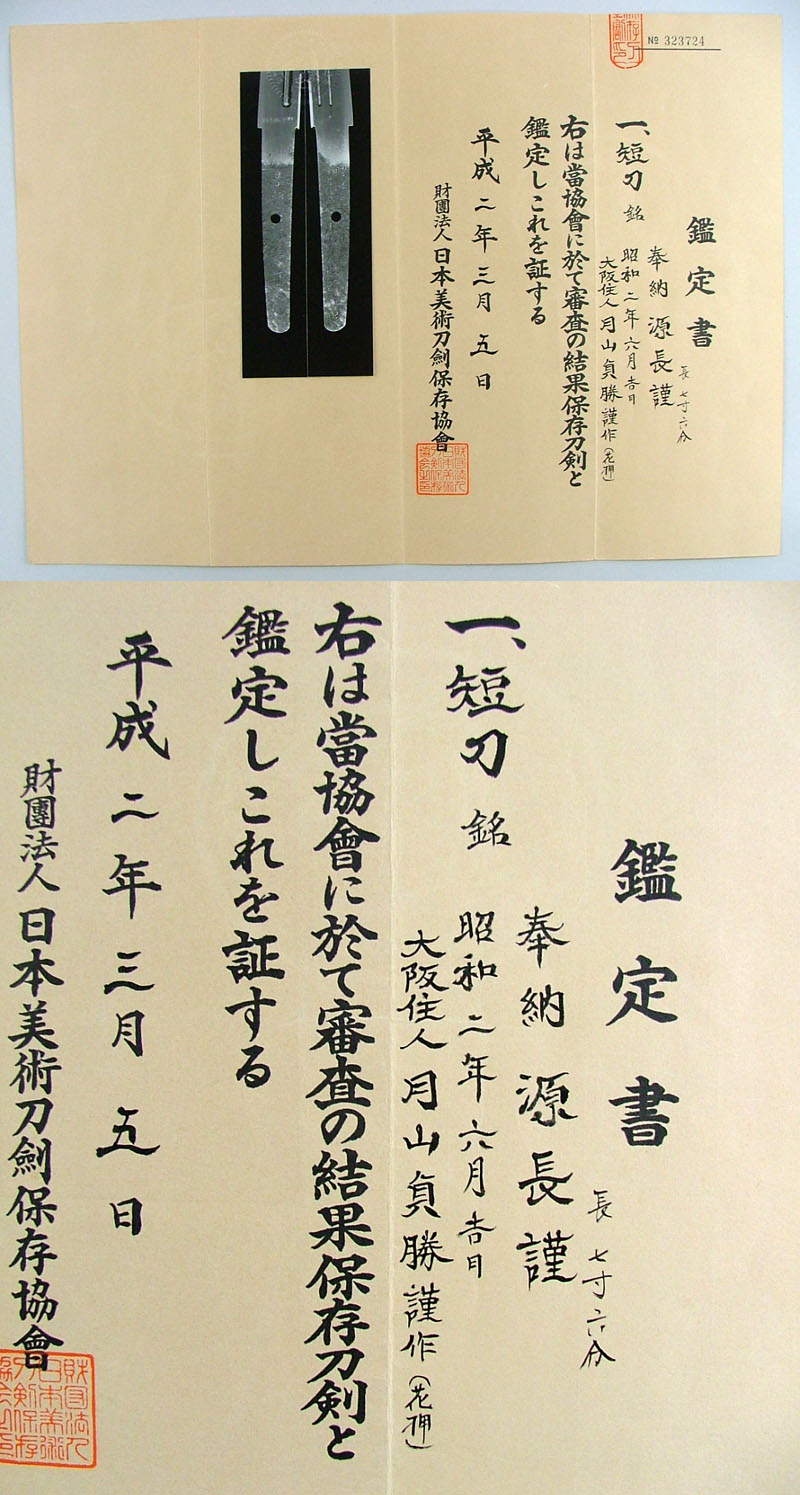 № 323724
鑑定書
長七寸六分
一、短刀 銘 奉納 源長謹
昭和二年六月吉日
大阪住人月山貞勝謹作（花押）
右は當協會に於て審査の結果保存刀剣と
鑑定しこれを証する
平成二年三月五日
財團法人日本美術刀劍保存協會
鑑定書
長七寸六分
一、短刀 銘 奉納 源長謹
昭和二年六月吉日
大阪住人月山貞勝謹作（花押）
右は當協會に於て審査の結果保存刀剣と
鑑定しこれを証する
平成二年三月五日
財團法人日本美術刀劍保存協會